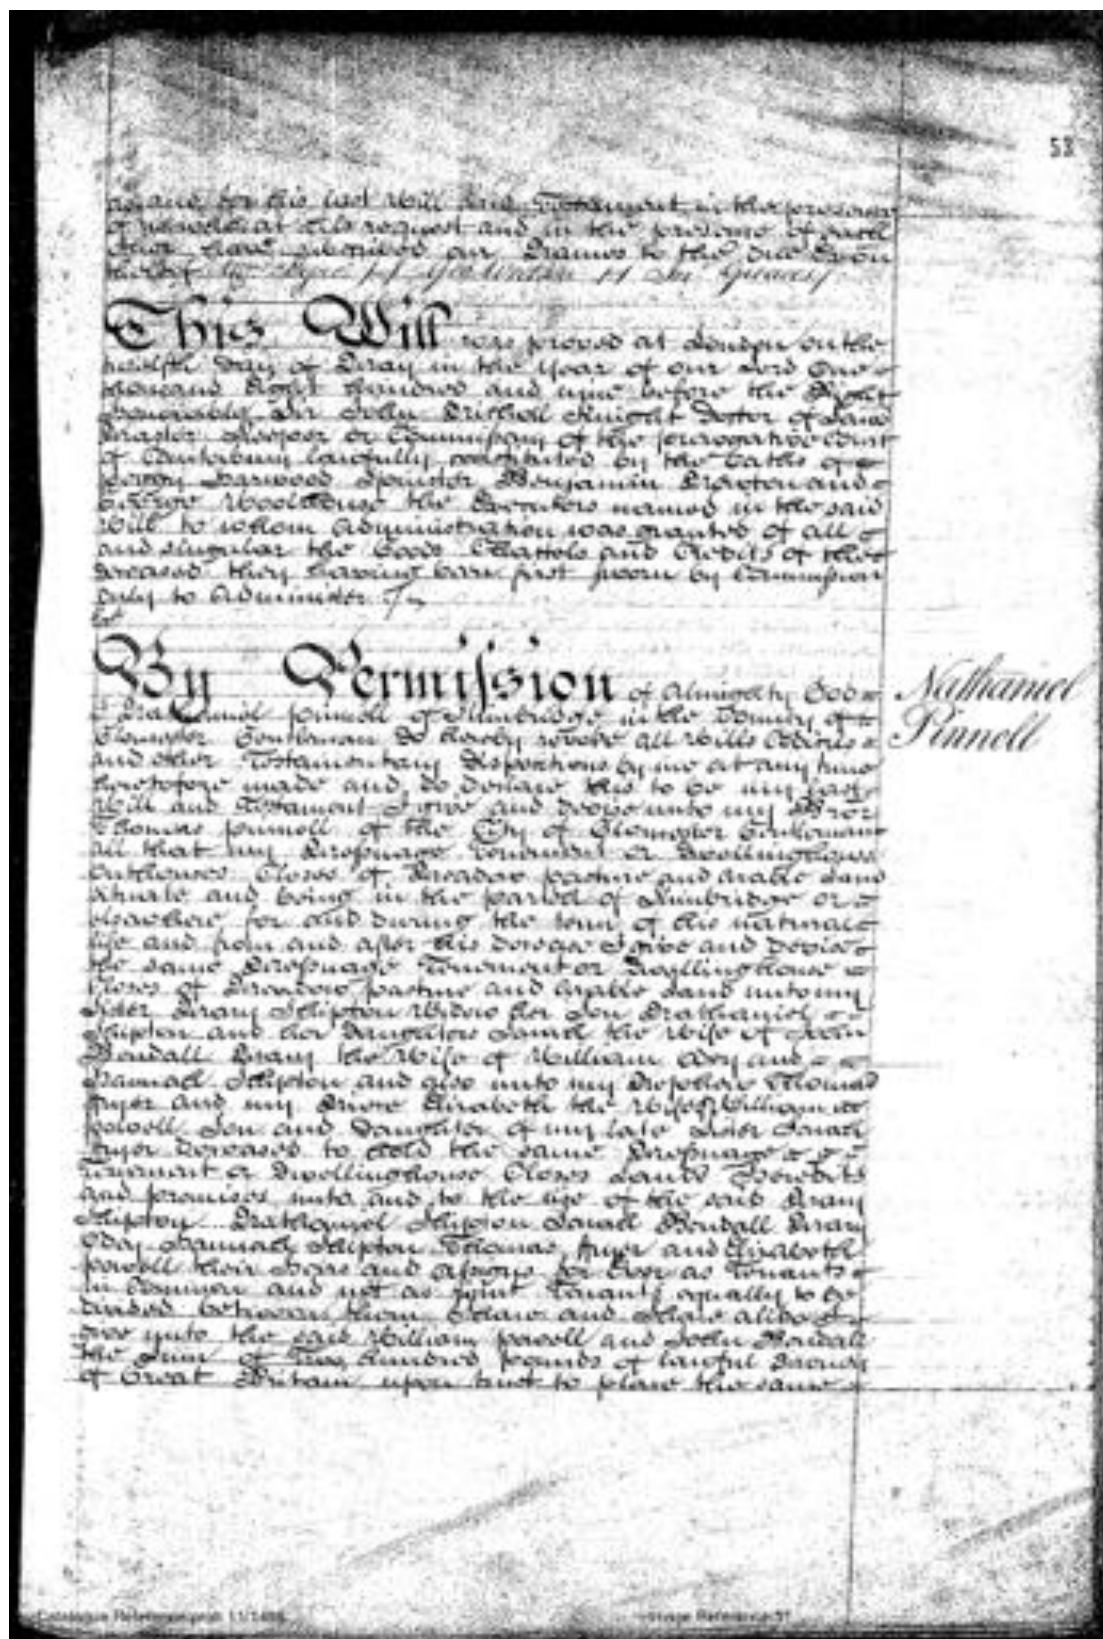 53
as and for his last Will and Testament in the presence
of us who at his request and in the presence of each
other have subscribed our Names to the due Exēon
thereof Wm Geo Watson Jn
This Will was proved at London on the
twelfth Day of May in the Year of our Lord One
thousand Eight Hundred and nine before the Right
Honourable Sir John Nicholl Knight Doctor of Laws
Master Keeper or Commissary of the prerogative Court
of Canterbury lawfully constituted by the Oaths of
Harwood Spinster Benjamin and
George Woolhouse the Executors named in the said
Will to whom Administration was granted of all
and singular the Goods Chattels and Credits of the
deceased they having been first sworn by Commission
duly to Administer
By Permission of Almighty God
Nathaniel
Pinnell
I Nathaniel Pinnell of Slimbridge in the County of
Gloucester Gentleman do hereby revoke all Wills Codicils
and other Testamentary Dispositions by me at any time
heretofore made and do declare this to be my last
Will and Testament I give and devise unto my Bror
Thomas Pinnell of the City of Gloucester Gentleman
all that my Messuage Tenement or Dwellinghouse
Outhouses Closes of Meadow pasture and arable Land
situate and being in the parish of Slimbridge or
elsewhere for and during the term of his natural
life and from and after his Decease I give and Devise
the same Messuage Tenement or Dwellinghouse
Closes of Meadow pasture and Arable Land unto my
Sister Mary Shipton Widow her Son Nathaniel
Shipton and her Daughters Sarah the Wife of John
Bendall Mary the Wife of William and
Hannah Shipton and also unto my Nephew Thomas
Fryer and my Niece Elizabeth the Wife of William
Powell Son and Daughter of my late Sister Sarah
Fryer Deceased to hold the same Messuage
Tenement or Dwellinghouse Closes Lands Heredits
and premises unto and to the use of the said Mary
Shipton Nathaniel Shipton Sarah Bendall Mary
Hannah Shipton Thomas Fryer and Elizabeth
Powell their Heirs and Assigns for Ever as Tenants
in Common and not as joint Tenants equally to be
divided between them Share and Share alike I
give unto the said William Powell and John Bendall
the Sum of Two Hundred pounds of lawful Money
of Great Britain upon trust to place the same
Catalogue Reference:prob 11/1498
Image Reference:57